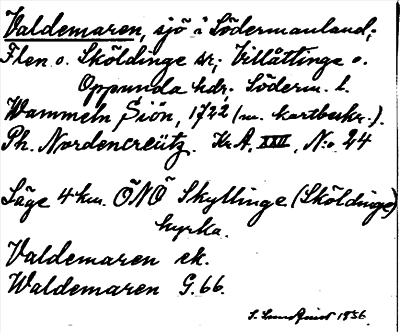 Valdemaren, sjö i Södermanland;
Flen o. Sköldinge sr; Villåttinge o.
Oppunda hdr. Söderm. l.
Wammeln Siön, 1722 (m. kartbeskr.).
Ph. Nordencreütz. Kr.A. XXII, N:o 24
Läge 4 km. ÖNÖ Skyllinge (Sköldinge)
kyrka.
Valdemaren ek.
Waldemaren G. 66.
S. Lundquist 1936.